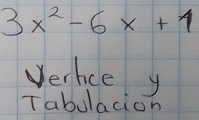 3x² - 6x + 1
Vertice y
Tabulacion